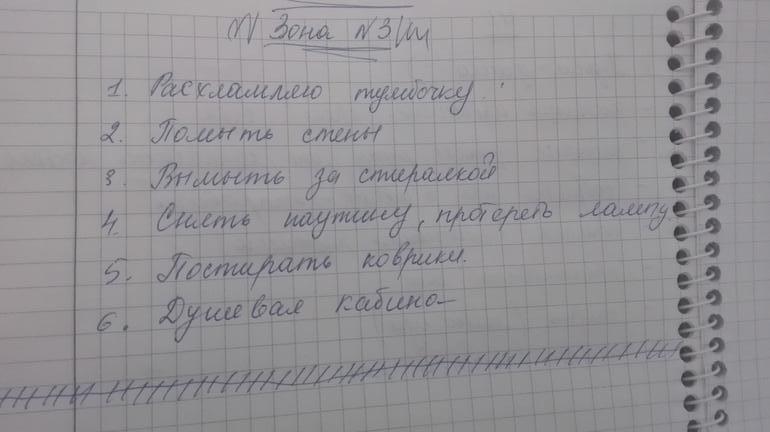 Зона №3
1. Расхламляю тумбочку.
2. Помыть стены
3. Вымыть за стиралкой
4. Снять паутину, протереть лампу.
5. Постирать коврики.
6. Душевая кабина